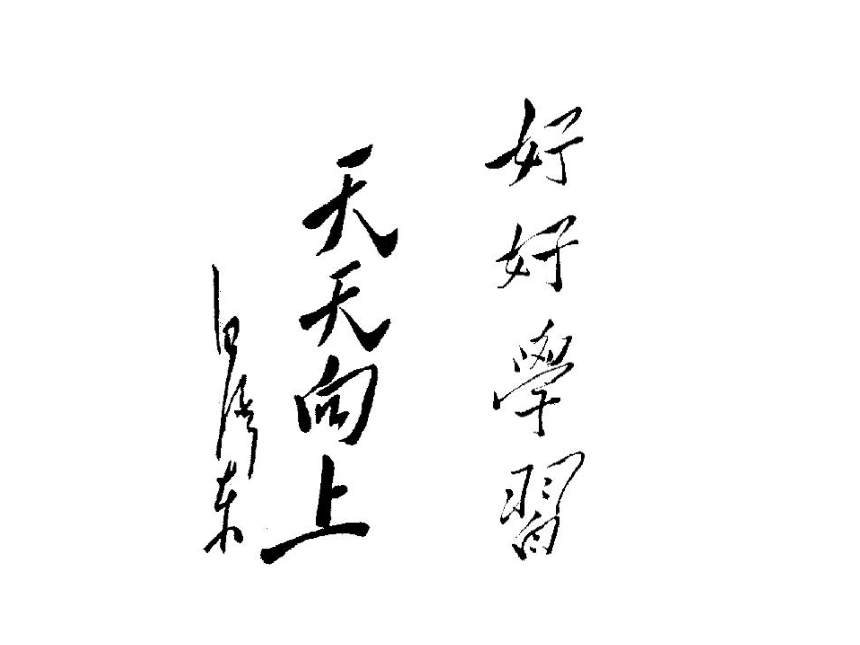 好好學習
天天向上
毛澤東